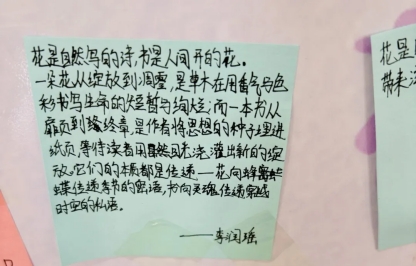 花是自然写的诗,书是人间开的花。
一朵花从绽放到凋零,是草木在用香气与色
彩书写生命的短暂与绚烂;而一本书从
扉页到终章,是作者将思想的种子埋进
纸页,等待读者用目光浇灌出新的绽
放。它们的本质都是传递——花向蜂
蝶传递季节的密语,书向灵魂传递穿越
时空的私语。
——李润瑶
花是
带来